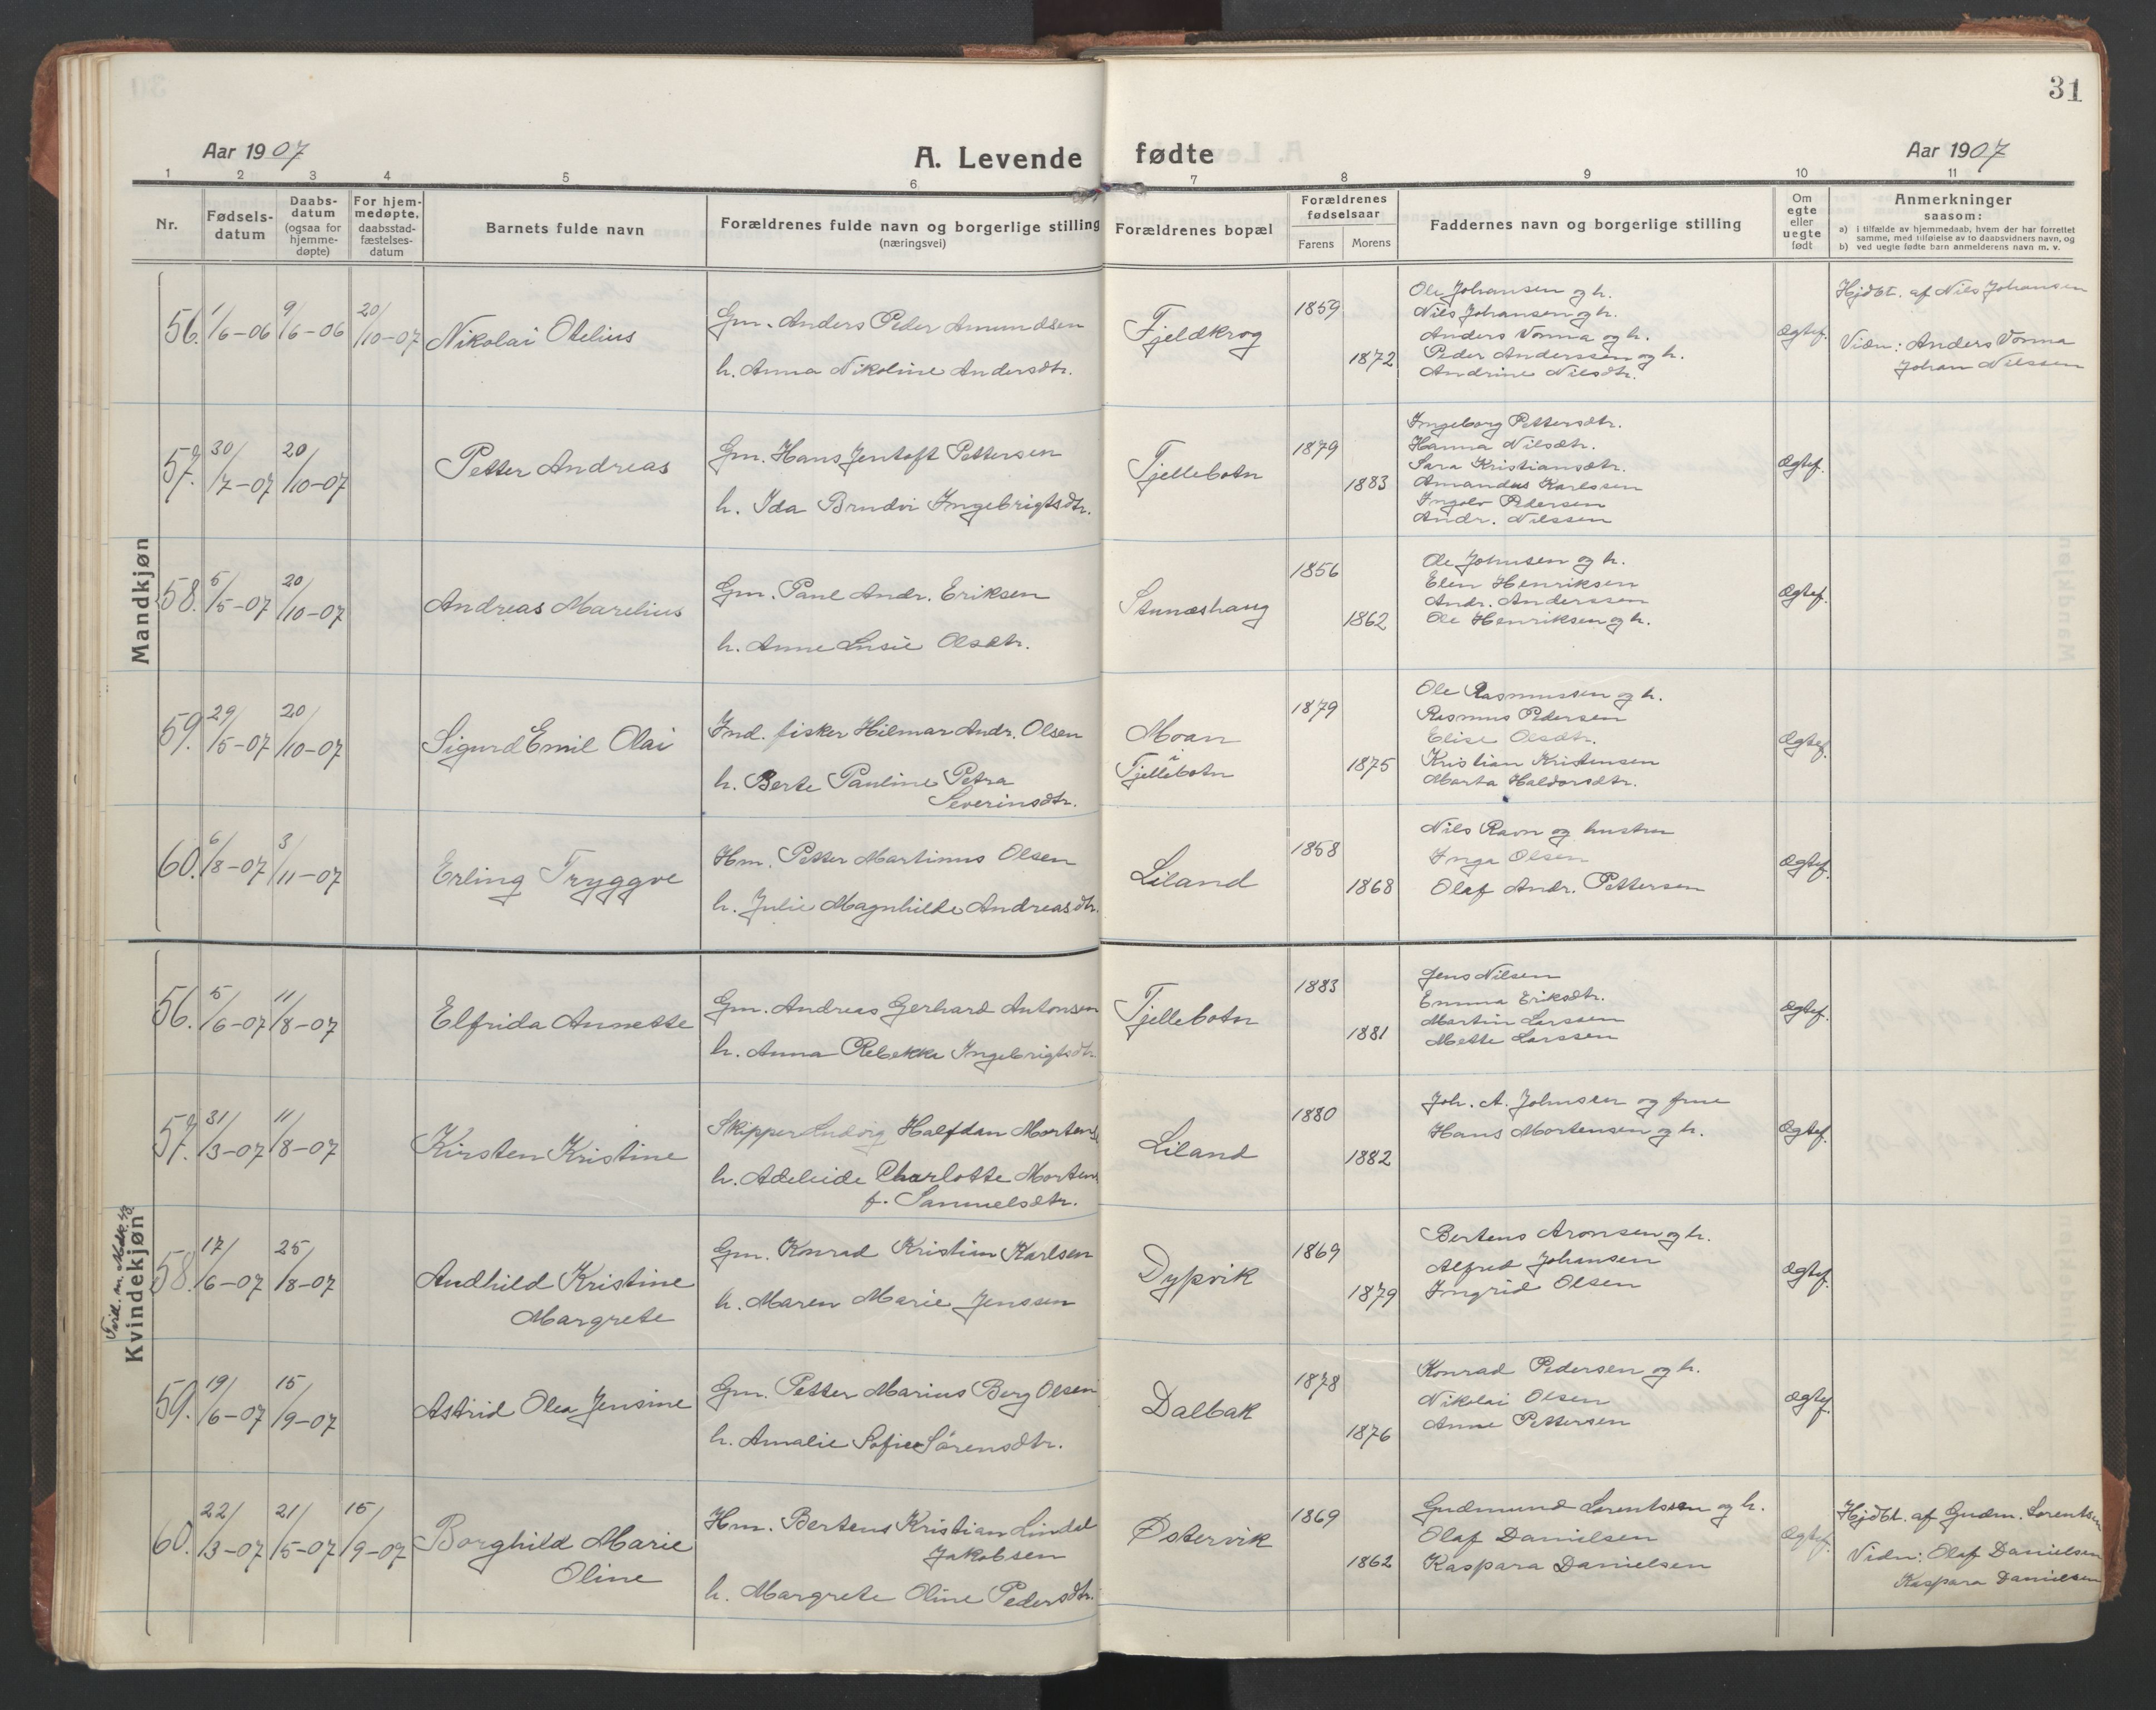 31
Aar 1907
A. Levende fødte
Aar 1907
1 2 3 4 5 6 7 8 9 10 11
Nr.
Fødsels-
datum
Daabs-
datum
(ogsaa for
hjemme-
døpte)
For hjem-
medøpte,
daabsstad-
fæstelses-
datum
Barnets fulde navn
Forældrenes fulde navn og borgerlige stilling
(næringsvei)
Forældrenes bopæl
Forældrenes
fødselsaar
Farens Morens
Faddernes navn og borgerlige stilling
Om
egte
eller
uegte
født
Anmerkninger
saasom:
a) i tilfælde av hjemmedaab, hvem der har forrettet
samme, med tilføielse av to daabsvidners navn, og
b) ved uegte fødte barn anmelderens navn m. v.
Mandkjøn
56. 1/6-06 9/6-06 20/10-07
Nikolai Otelius
Gm. Anders Peder Amundsen
h. Anna Nikoline Andersdtr.
Fjeldkrog
1859
1872
Ole Johansen og h.
Nils Johansen og h.
Anders Vonna og h.
Peder Anderssen og h.
Andrine Nilsdtr.
Ægtef.
Hjdbt. af Nils Johansen
Vidn: Anders Vonna
Johan Nilssen
57. 30/7-07 20/10-07
Petter Andreas
Gm. Hans Jentoft Pettersen
h. Ida Brudvi Ingebrigtsdtr.
Tjellebotn
1879
1883
Ingeborg Pettersdtr.
Hanna Nilsdtr.
Sara Kristiansdtr.
Amandus Karlssen
Ingolv Pedersen
Andr. Nilssen
Ægtef.
58. 5/5-07 20/10-07
Andreas Marelius
Gm. Paul Andr. Eriksen
h. Anne Lusie Olsdtr.
Stunæshaug
1856
1862
Ole Johnsen og h.
Elen Henriksen
Andr. Anderssen
Ole Henriksen og h.
Ægtef.
59. 29/5-07 20/10-07
Sigurd Emil Olai
Ind. fisker Hilmar Andr. Olsen
h. Berte Pauline Petra
Severinsdtr.
Moan
i
Tjellebotn
1879
1875
Ole Rasmussen og h.
Rasmus Pedersen
Elise Olsdtr.
Kristian Kristensen
Marta Haldorsdtr.
Ægtef.
60. 6/8-07 3/11-07
Erling Tryggve
Hm. Petter Martinus Olsen
h. Julie Magnhilde Andreasdtr.
Liland
1858
1868
Nils Ravn og hustru
Inga Olsen
Olaf Andr. Pettersen
Ægtef.
Kvindekjøn
56. 5/6-07 11/8-07
Elfrida Annette
Gm. Andreas Gerhard Antonsen
h. Anna Rebekka Ingebrigtsdtr.
Tjellebotn
1883
1881
Jens Nilsen
Emma Eriksdtr.
Martin Larssen
Mette Larssen
Ægtef.
57. 31/3-07 11/8-07
Kirsten Kristine
Skipper Ludvig Halfdan Mortens
h. Adeleide Charlotte Mortens
f. Samuelsdtr.
Liland
1880
1882
Joh. A. Johnsen og frue
Hans Mortensen og h.
Ægtef.
58. 17/6-07 25/8-07
Audhild Kristine
Margrete
Gm. Konrad Kristian Karlsen
h. Maren Marie Jenssen
Dypvik
1869
1879
Bertens Aronsen og h.
Alfred Johansen
Ingrid Olsen
Ægtef.
59. 19/6-07 15/9-07
Astrid Olea Jensine
Gm. Petter Marius Berg Olsen
h. Amalie Sofie Sørensdtr.
Dalbak
1878
1876
Konrad Pedersen og h.
Nikolai Olsen
Anne Pettersen
Ægtef.
60. 22/3-07 21/5-07 15/9-07
Borghild Marie
Oline
Hm. Bertens Kristian Lindal
Jakobsen
h. Margrete Oline Pedersdtr.
Østervik
1869
1862
Gudmund Lorentsen og h.
Olaf Danielsen
Kaspara Danielsen
Ægtef.
Hjdbt. af Gudm. Lorentsen
Vidn: Olaf Danielsen
Kaspara Danielsen